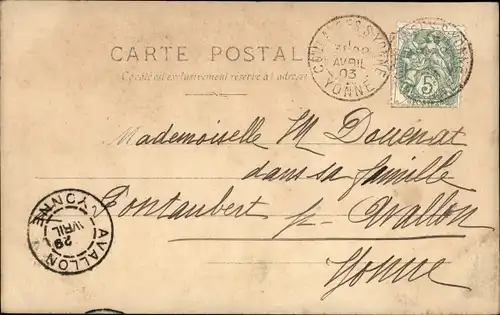 CARTE POSTALE
Ce côté est exclusivement réservé à l'adresse
AVRIL
03
YONNE
5
Mademoiselle M Douenat
dans sa famille
Pontaubert pr Avallon
Yonne
AVALLON
YONNE
29
AVRIL